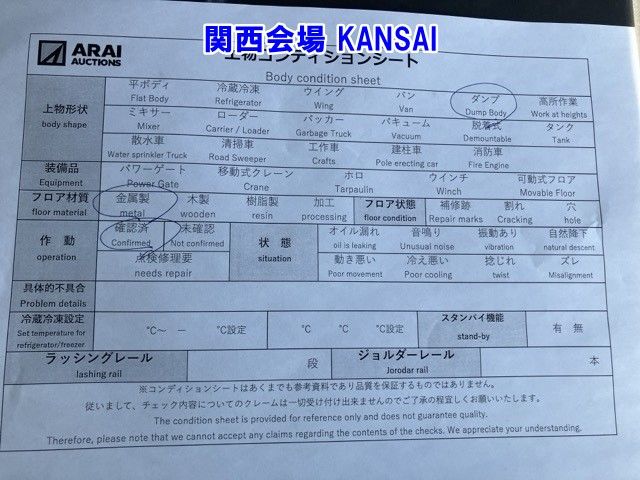 関西会場 KANSAI
ARAI
AUCTIONS
上物コンディションシート
Body condition sheet
上物形状
body shape
平ボディ 冷蔵冷凍 ウイング バン ダンプ 高所作業
Flat Body Refrigerator Wing Van Dump Body Work at heights
ミキサー ローダー パッカー バキューム 脱着式 タンク
Mixer Carrier / Loader Garbage Truck Vacuum Demountable Tank
散水車 清掃車 工作車 建柱車 消防車
Water sprinkler Truck Road Sweeper Crafts Pole erecting car Fire Engine
装備品
Equipment
パワーゲート 移動式クレーン ホロ ウインチ 可動式フロア
Power Gate Crane Tarpaulin Winch Movable Floor
フロア材質
floor material
金属製 木製 樹脂製 加工
metal wooden resin processing
フロア状態
floor condition
補修跡 割れ 穴
Repair marks Cracking hole
作 動
operation
確認済 未確認
Confirmed Not confirmed
点検修理要
needs repair
状 態
situation
オイル漏れ 音鳴り 振動あり 自然降下
oil is leaking Unusual noise vibration natural descent
動き悪い 冷え悪い 捻じれ ズレ
Poor movement Poor cooling twist Misalignment
具体的不具合
Problem details
冷蔵冷凍設定
Set temperature for
refrigerator/freezer
℃～ － ℃設定 ℃ ℃ ℃設定
スタンバイ機能
stand-by
有 無
ラッシングレール
lashing rail
段
ジョルダーレール
Jorodar rail
本
※コンディションシートはあくまでも参考資料であり品質を保証するものではありません。
従いまして、チェック内容についてのクレームは一切受け付け出来ませんのでご了承の程宜しくお願いいたします。
The condition sheet is provided for reference only and does not guarantee quality.
Therefore, please note that we cannot accept any claims regarding the contents of the checks. We appreciate your understanding.